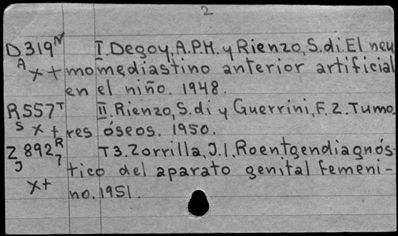 2
D319N I. Degoy, A.P.H. y Rienzo, S. di. El neu
A x + momediastino anterior artificial
en el niño. 1948.
R557T II. Rienzo, S. di y Guerrini, F. Z. Tumo
S x + res óseos. 1950.
Z892R T3. Zorrilla, J. I. Roentgendiagnós-
J 7 tico del aparato genital femeni-
x+ no. 1951.